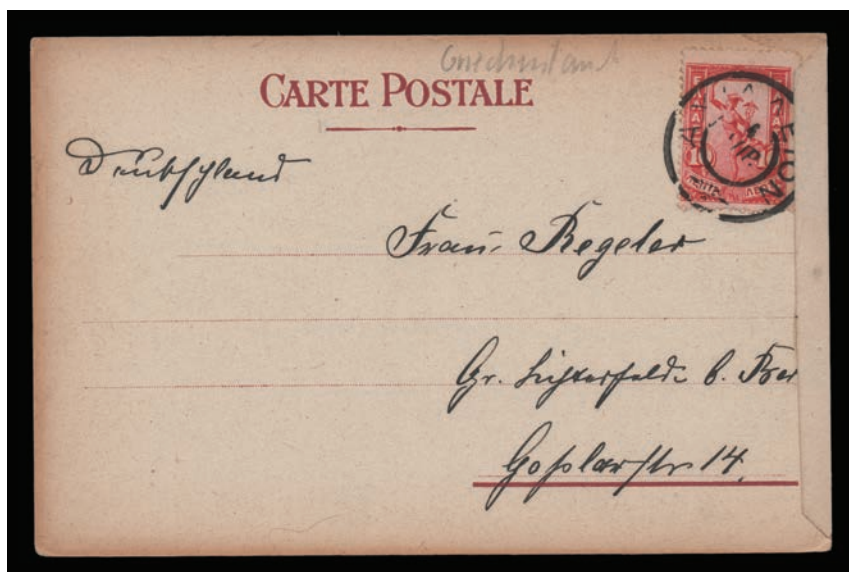 CARTE POSTALE
Deutschland
Frau Regeler
Gr. Lichterfelde b. Ber
Goßlarstr. 14.